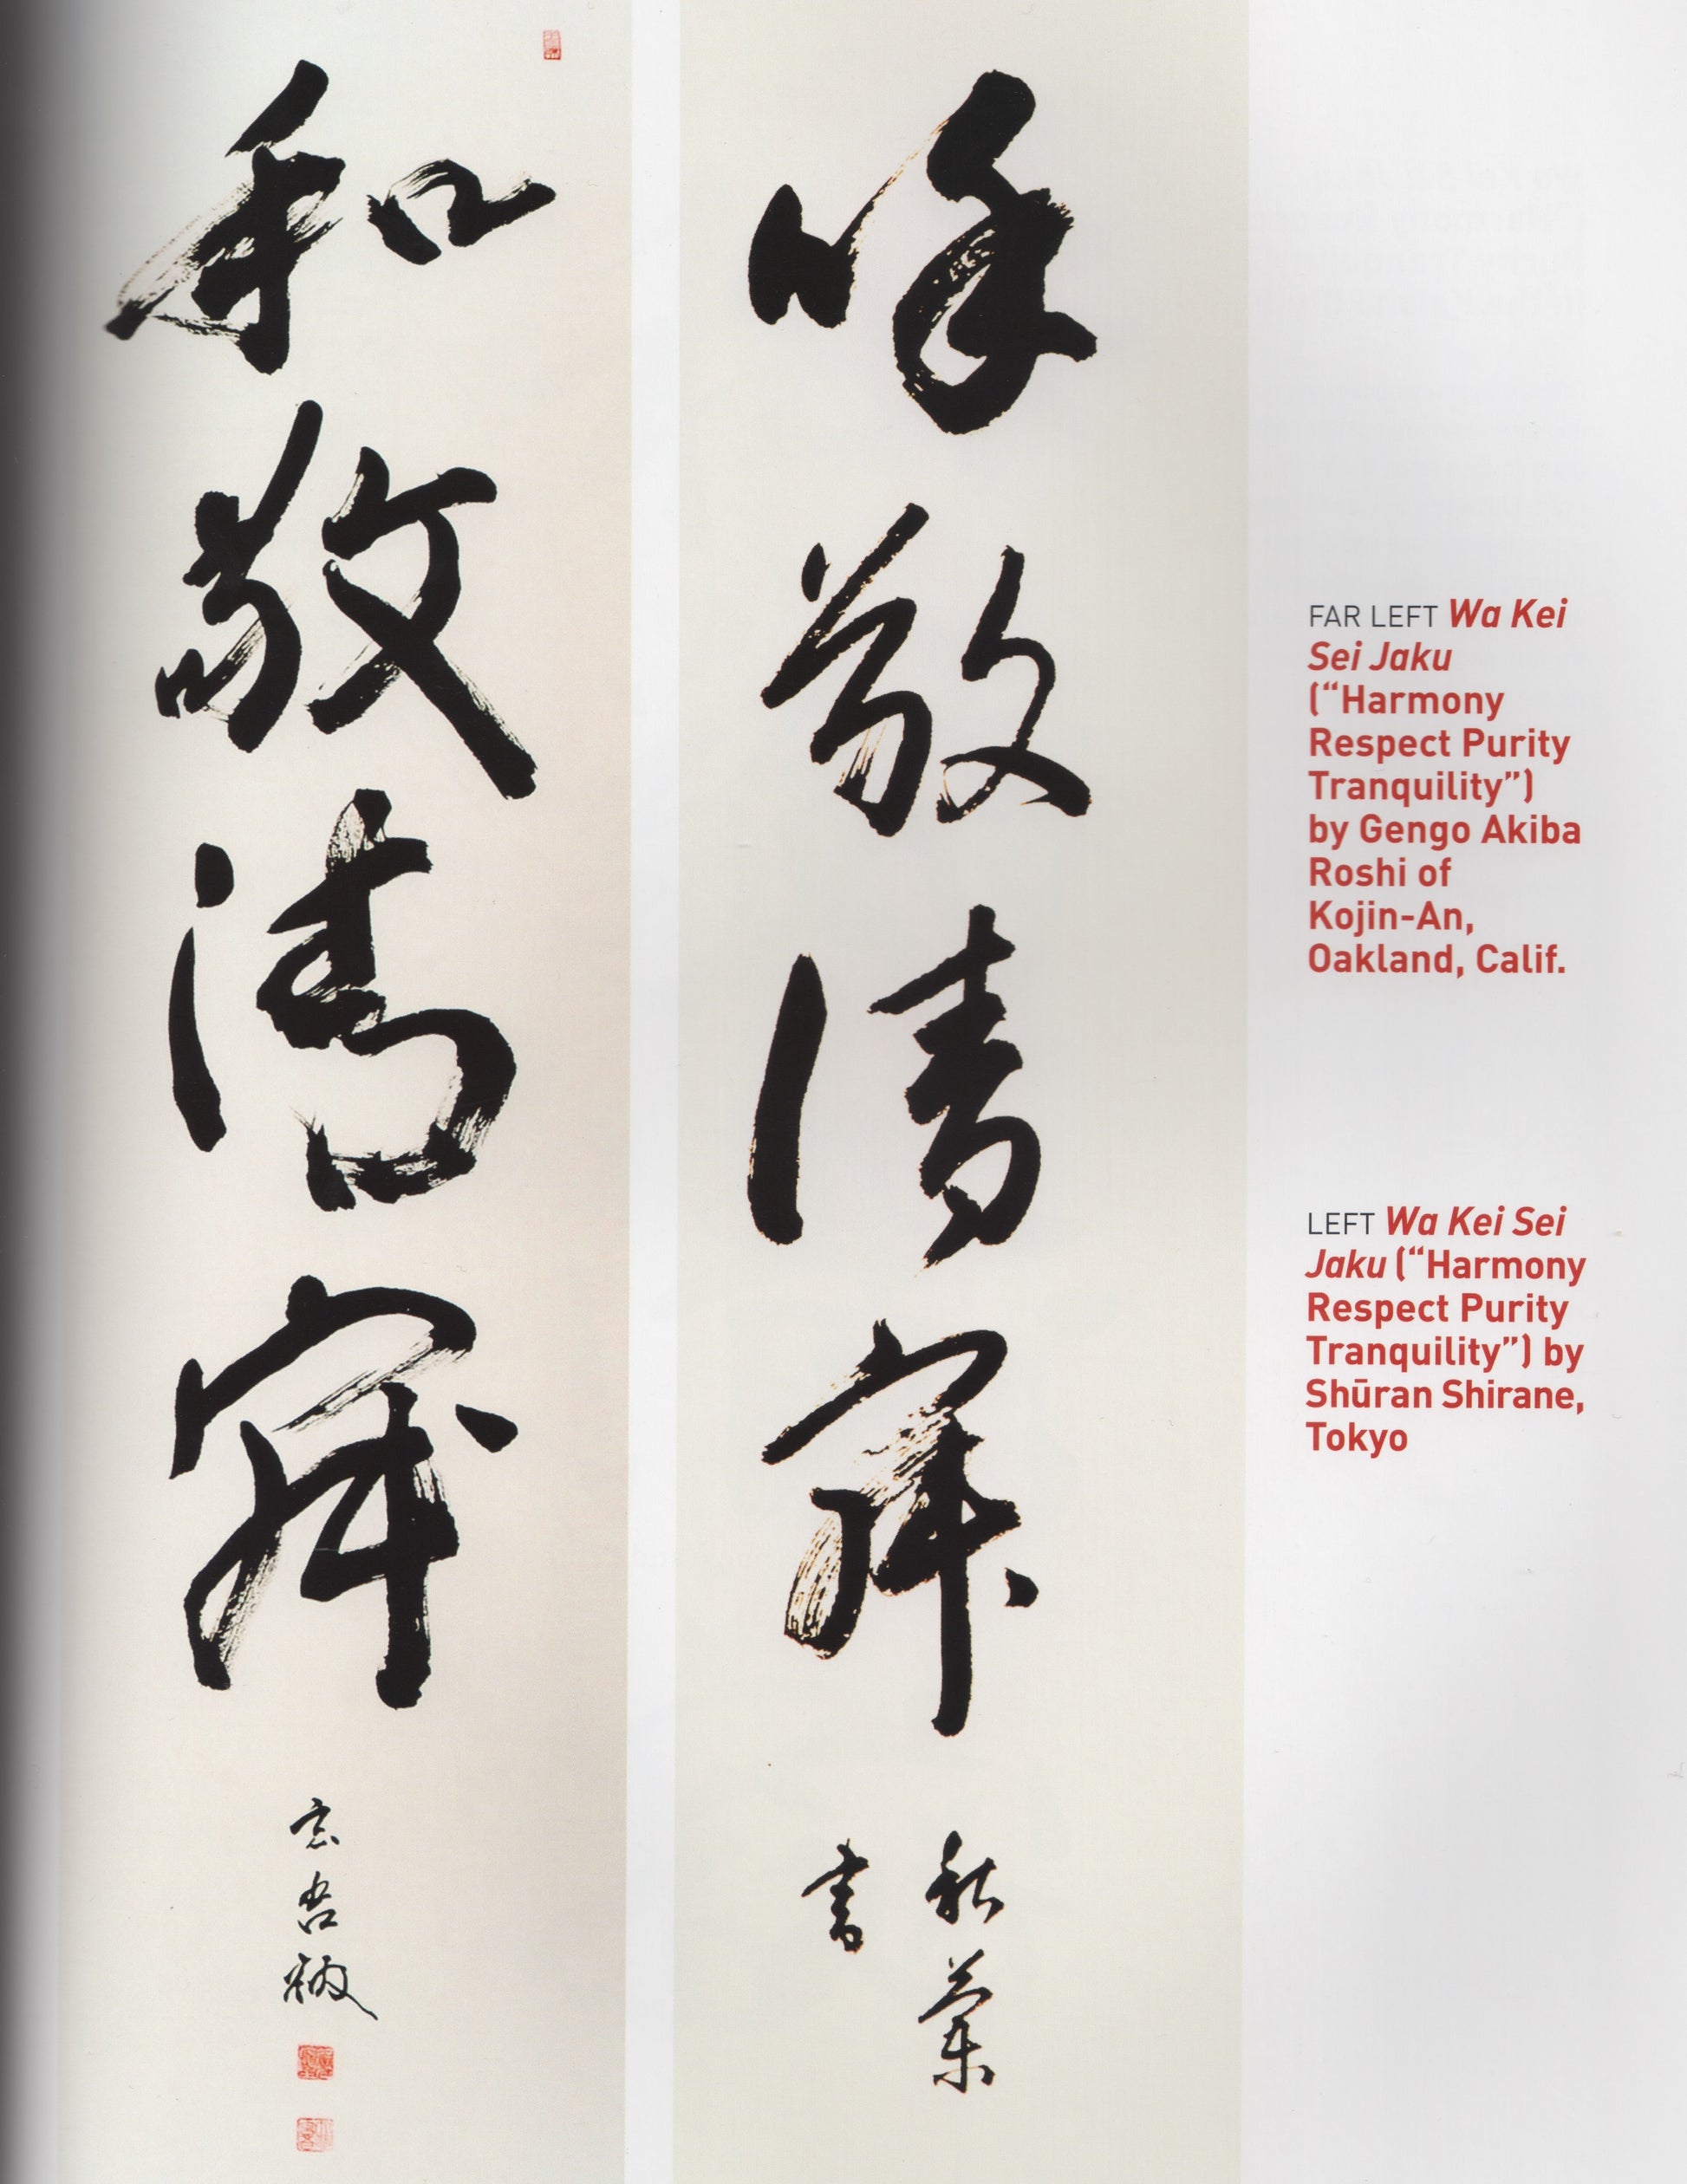 和敬清寂
玄吾
咊敬清寂
秋蘭
書
FAR LEFT Wa Kei
Sei Jaku
(“Harmony
Respect Purity
Tranquility”)
by Gengo Akiba
Roshi of
Kojin-An,
Oakland, Calif.
LEFT Wa Kei Sei
Jaku (“Harmony
Respect Purity
Tranquility”) by
Shūran Shirane,
Tokyo